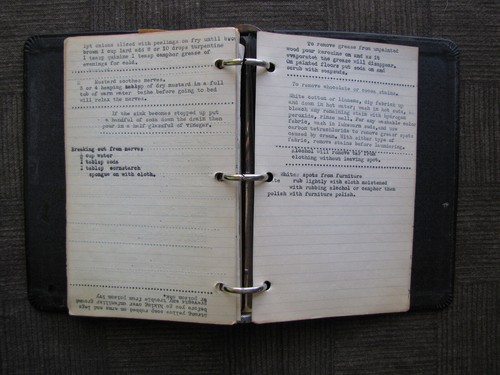 1pt onions sliced with peelings on fry until
brown 1 cup lard add 8 or 10 drops turpentine
1 teasp quinine 1 teasp camphor grease of
evenings for cold.
Mustard soothes nerves.
3 or 4 heaping tablsp of dry mustard in a full
tub of warm water bathe before going to bed
will relax the nerves.
If the sink becomes stopped up put
a handful of soda down the drain then
pour in a half glassful of vinegar.
Breaking out from nerves
cup water
1 tablsp soda
1 tablsp cornstarch
sponge on with cloth.
Strong yellow soap rubbed on arms and legs
before you go hiking over unfamiliar ground
prevents any trouble from poison ivy
or poison oak.
To remove grease from unpainted
wood pour kerosine on and as it
evaporates the grease will disappear.
On painted floors put soda on and
scrub with soapsuds.
To remove chocolate or cocoa stains.
White cotton or linens, dip fabric up
and down in hot water, wash in hot suds,
bleach any remaining stain with hydrogen
peroxide, rinse well. For any washable
fabric, wash in lukewarm suds, and use
carbon tetrachloride to remove grease spots
caused by cream. With either type of
fabric, remove stains before laundering.
alcohol will remove tar from
clothing without leaving spot.
White spots from furniture
rub lightly with cloth moistened
with rubbing alcohol or camphor then
polish with furniture polish.